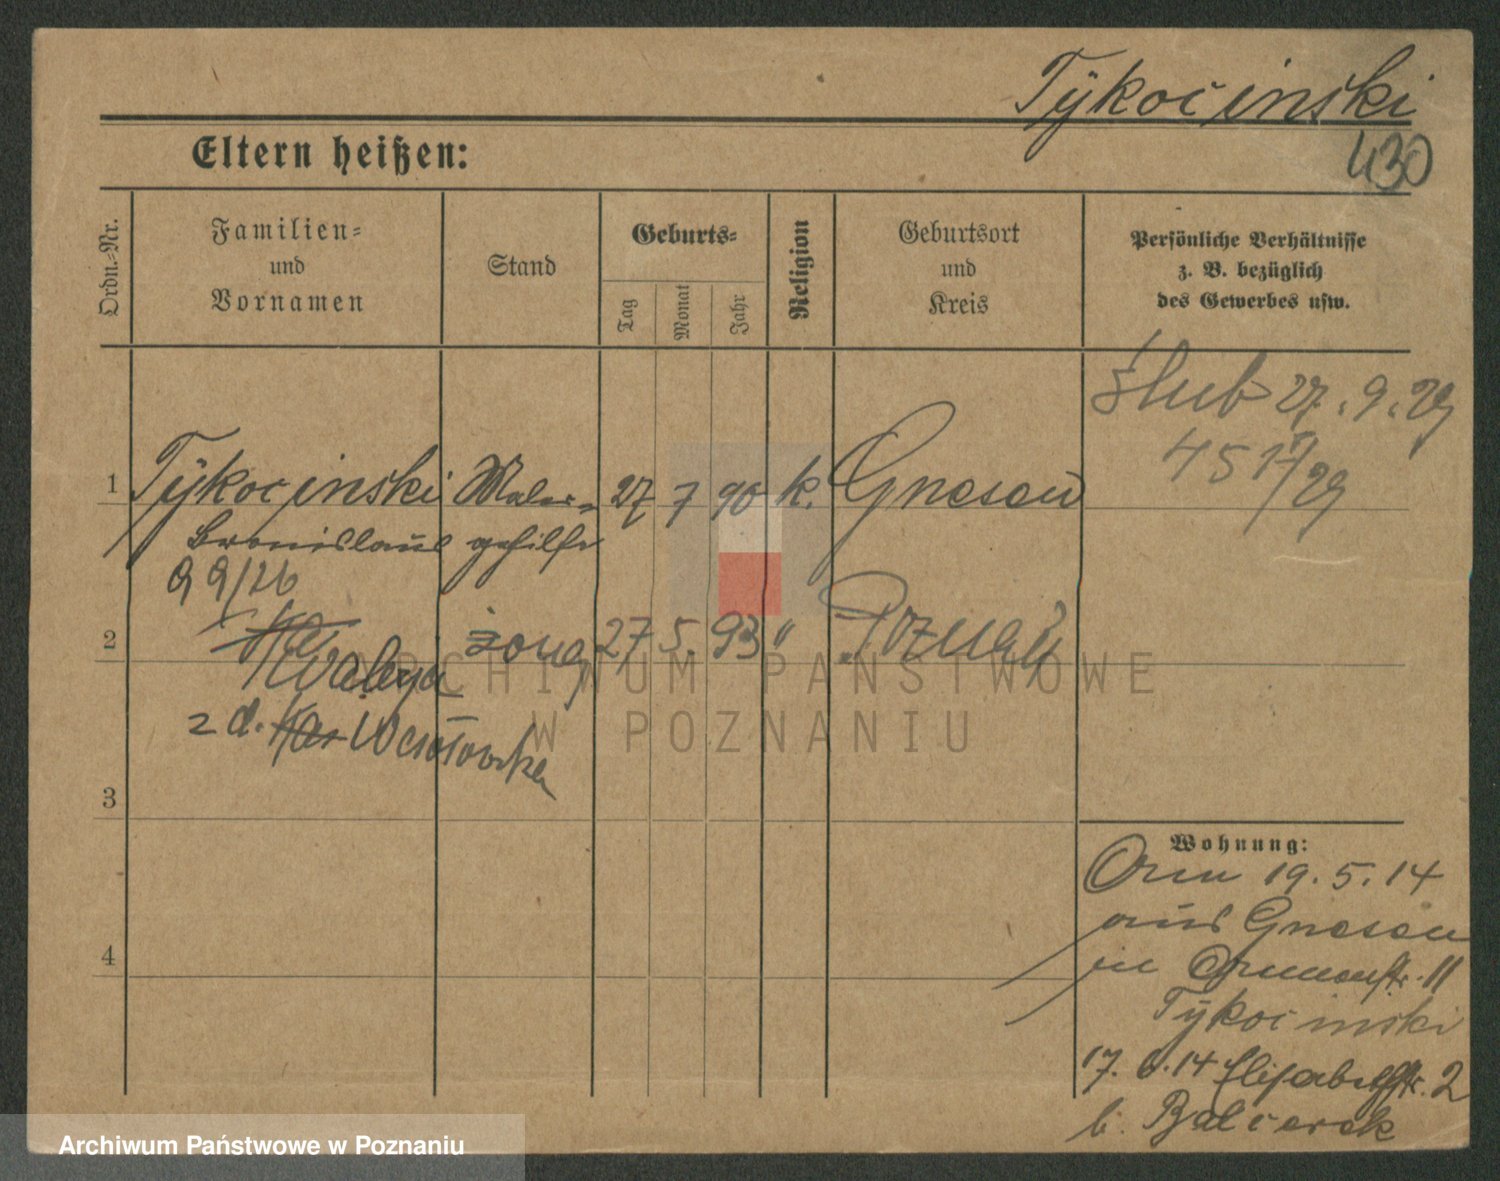 Tÿkocinski
430
Eltern heißen:
Ordn.-Nr.
Familien=
und
Vornamen
Stand
Geburts=
Tag
Monat
Jahr
Religion
Geburtsort
und
Kreis
Persönliche Verhältnisse
z. B. bezüglich
des Gewerbes usw.
ślub 27.9.29
451/29
1 Tÿkocinski Maler= 27 7 90 k. Gnesen
Bronislaus gehilfe
9/26
2 żona 27 5. 93 " Poznań
Waleryа
z d. Wesołowska
3
4
Wohnung:
19.5.14
aus Gnesen
in 11
Tÿkocinski
17.6.14 Elisabethstr. 2
b. Balcerek
ARCHIWUM PAŃSTWOWE
W POZNANIU
Archiwum Państwowe w Poznaniu